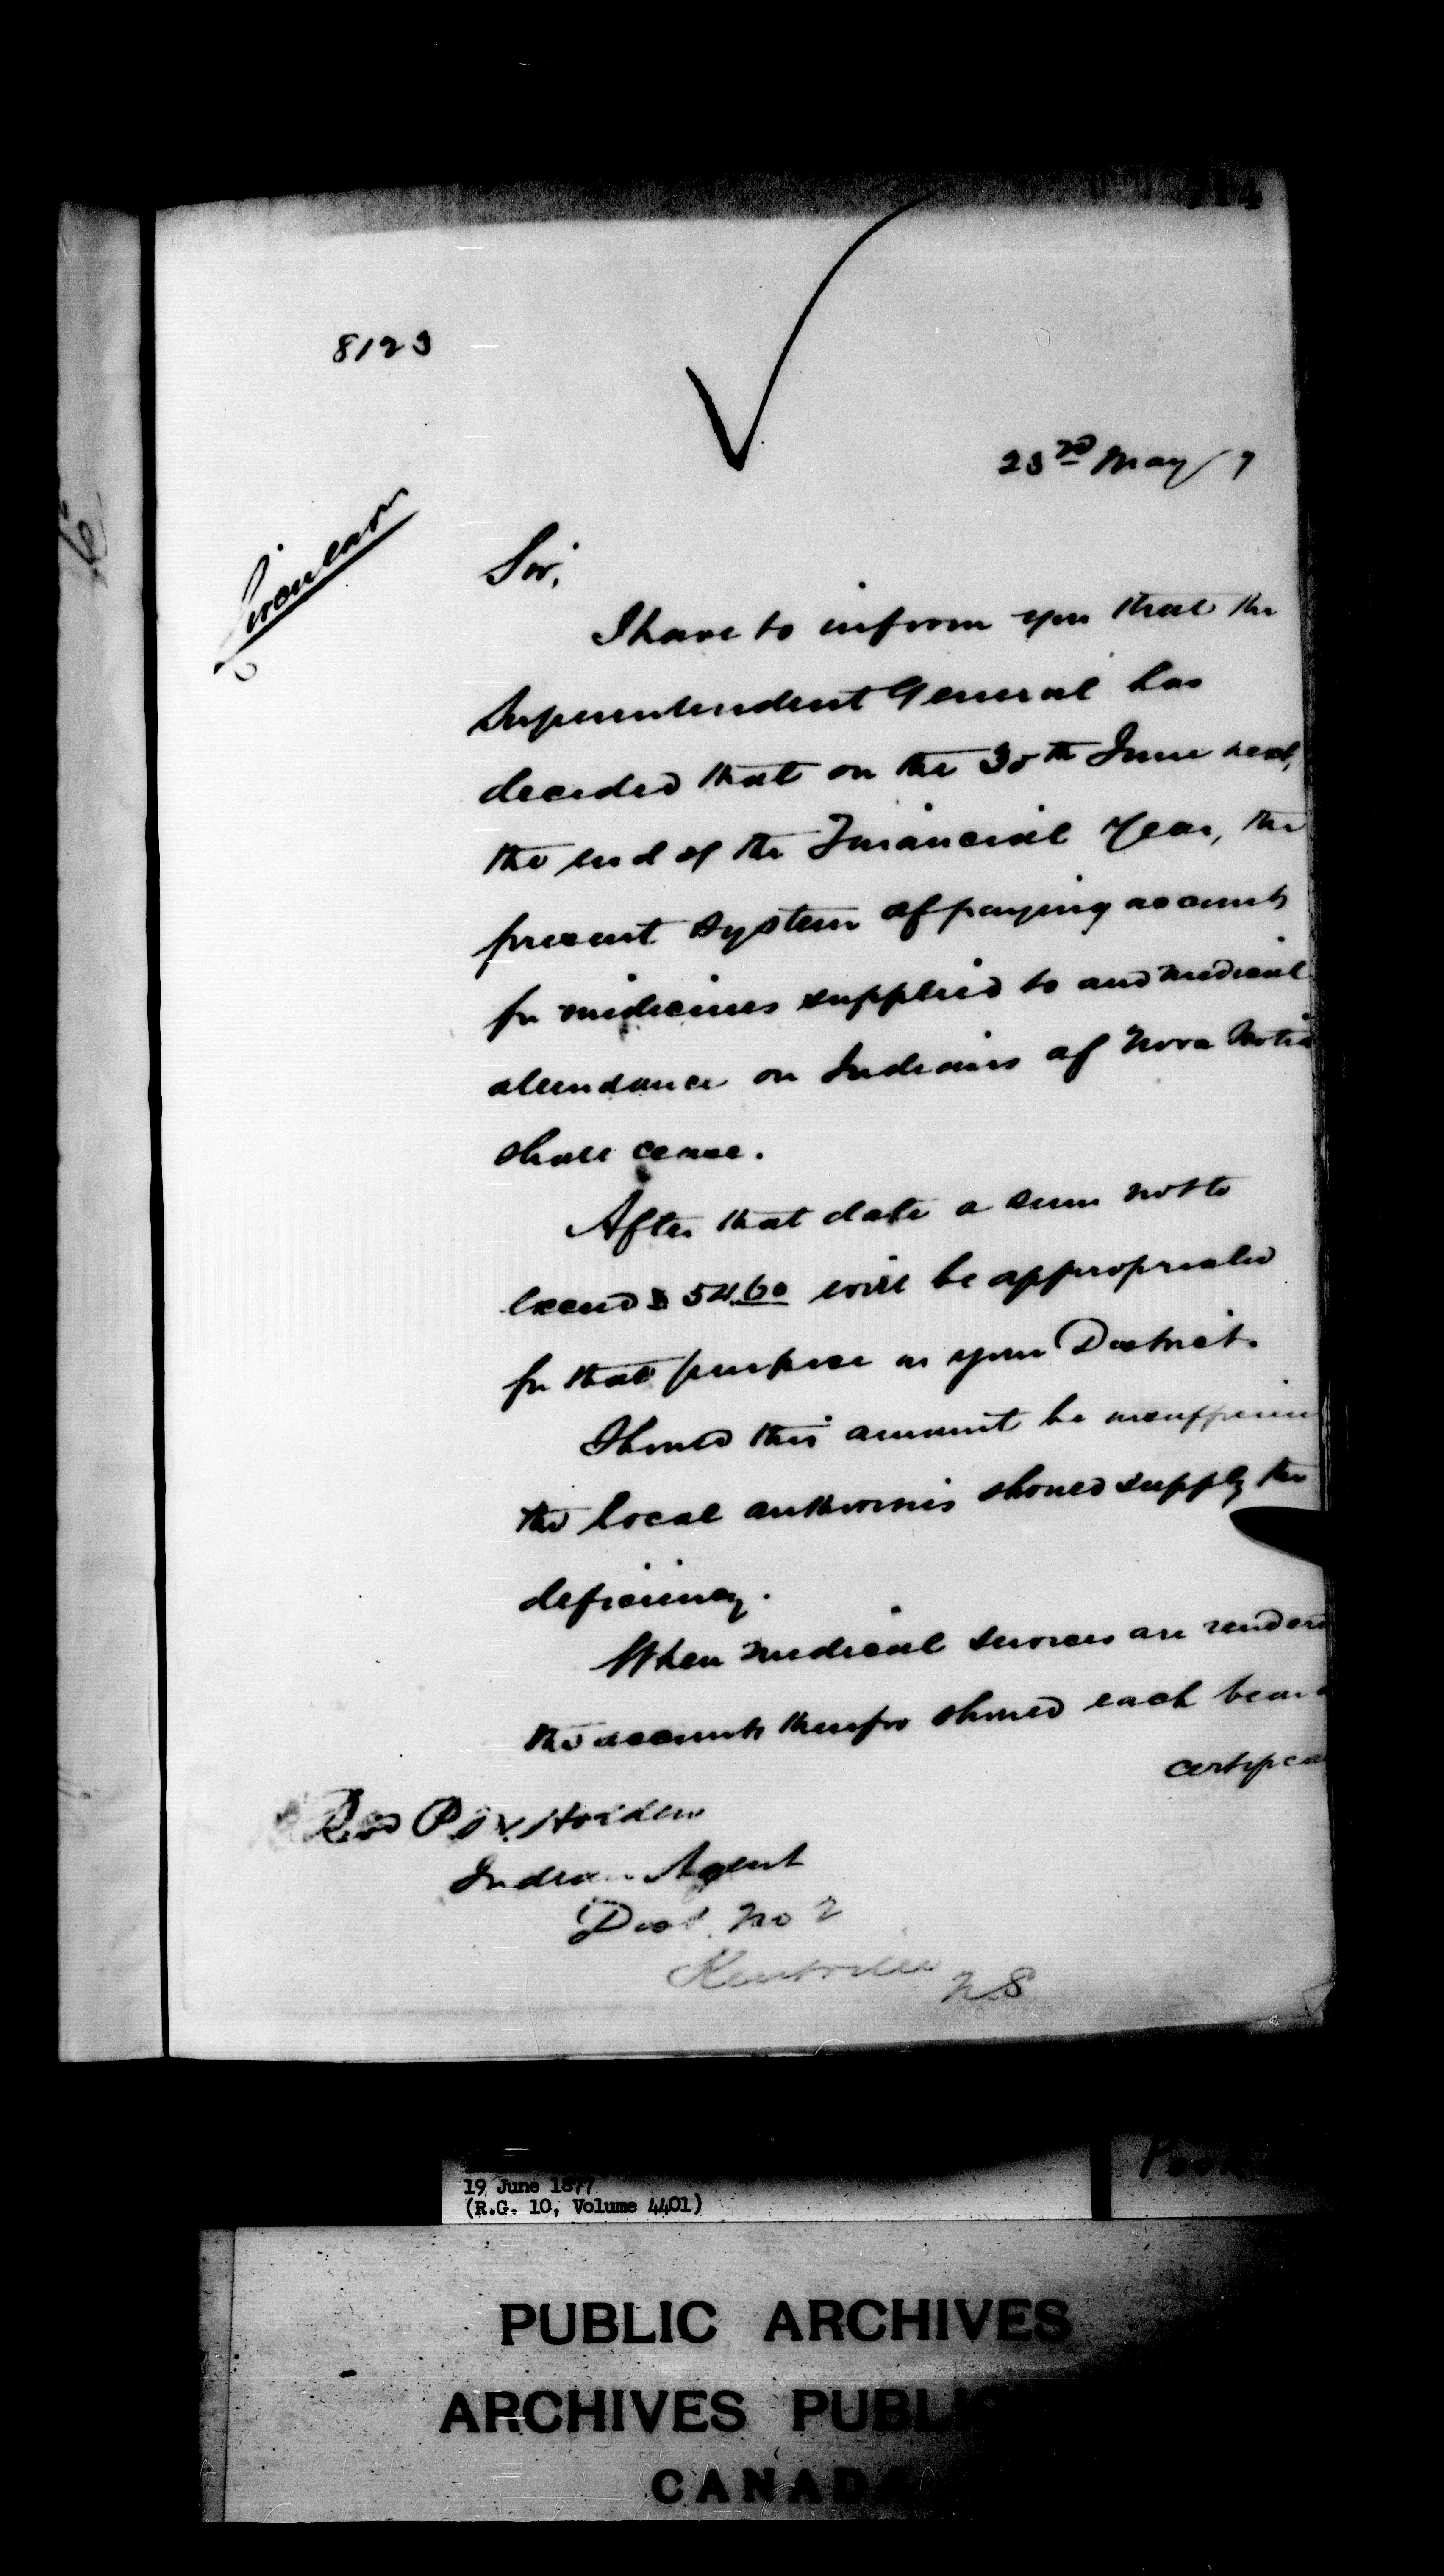 8123
23rd May / 7
Circular
Sir,
I have to inform you that the
Superintendent General has
decided that on the 30th June next,
the end of the Financial Year, the
present system of paying accounts
for medicines supplied to and medical
attendance on Indians of Nova Scotia
shall cease.
After that date a sum not to
exceed $54.60 will be appropriated
for that purpose in your District.
Should this amount be insufficien
the local authorities should supply the
deficiency.
When medical services are rendere
the accounts therefor should each bear a
certifica
Rev P. Holden
Indian Agent
Dist. No 2
Kentville
N.S
19 June 1877
(R.G. 10, Volume 4401)
PUBLIC ARCHIVES
ARCHIVES PUBLIC
CANADA